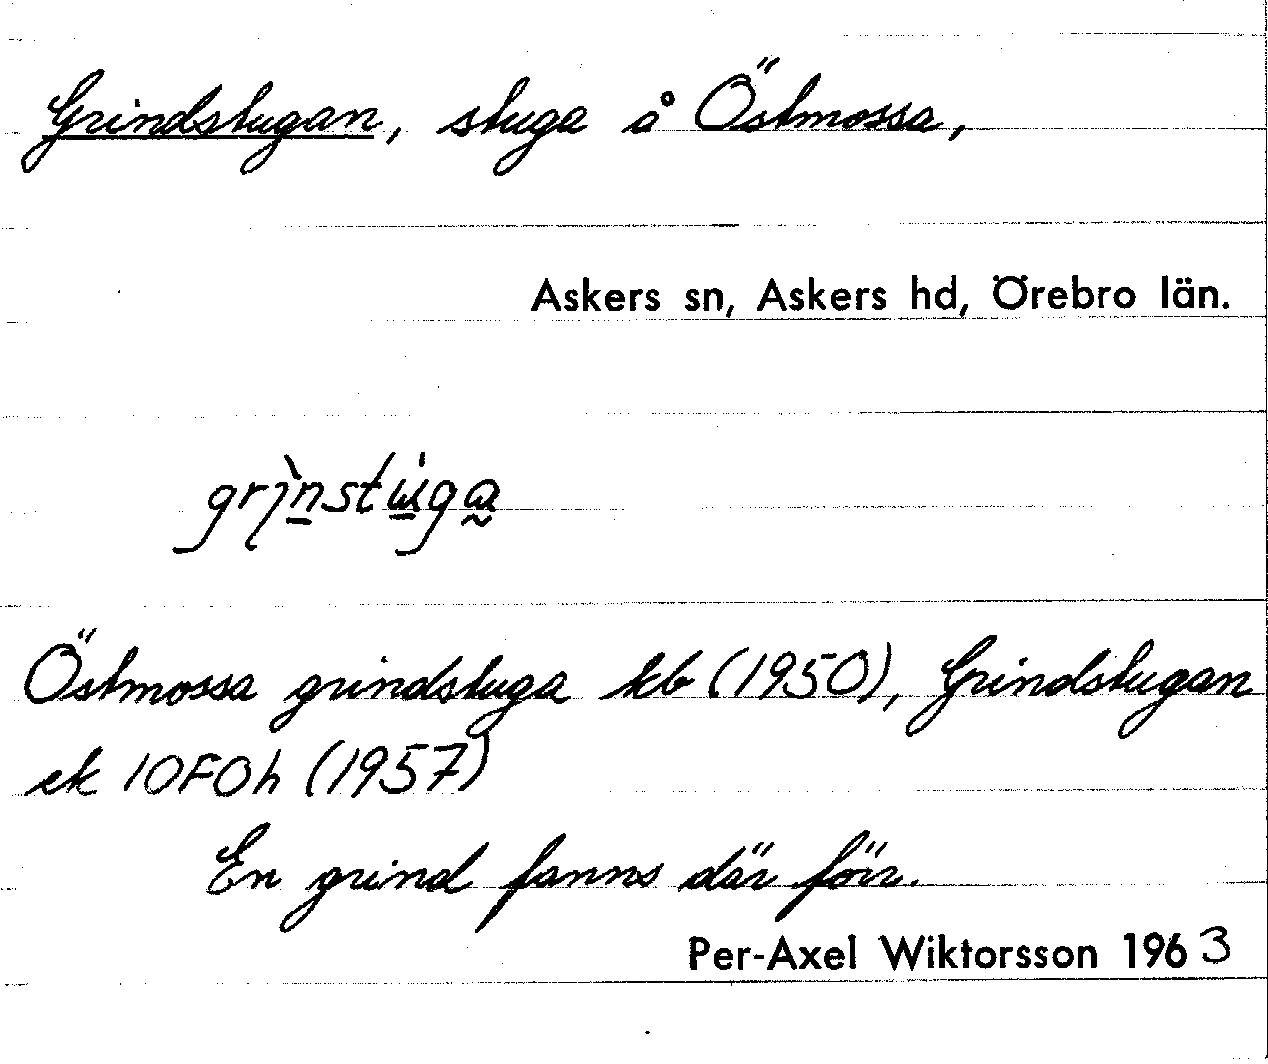 Grindstugan, stuga å Östmossa,
Askers sn, Askers hd, Örebro län.
grı̀nstu̇ga
Östmossa grindstuga kb (1950), Grindstugan
ek 10F0h (1957)
En grind fanns där förr.
Per-Axel Wiktorsson 1963